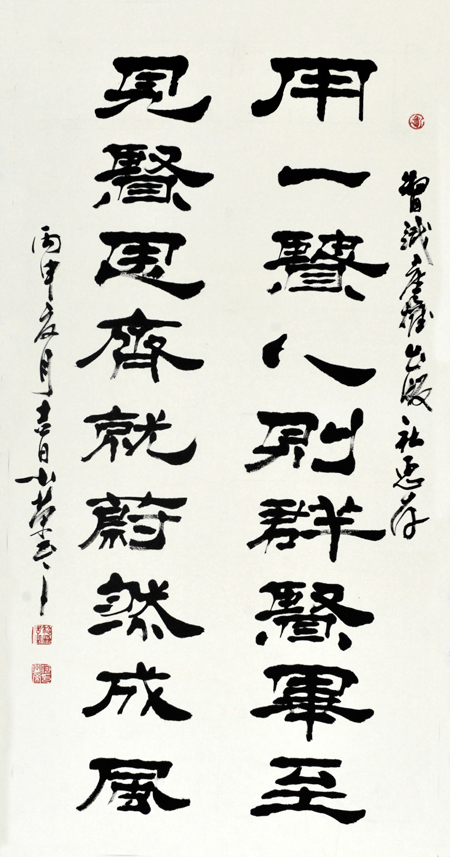 智識產權出版社惠存
用一賢人則群賢畢至
見賢思齊就蔚然成風
丙申夏月吉日小榮書